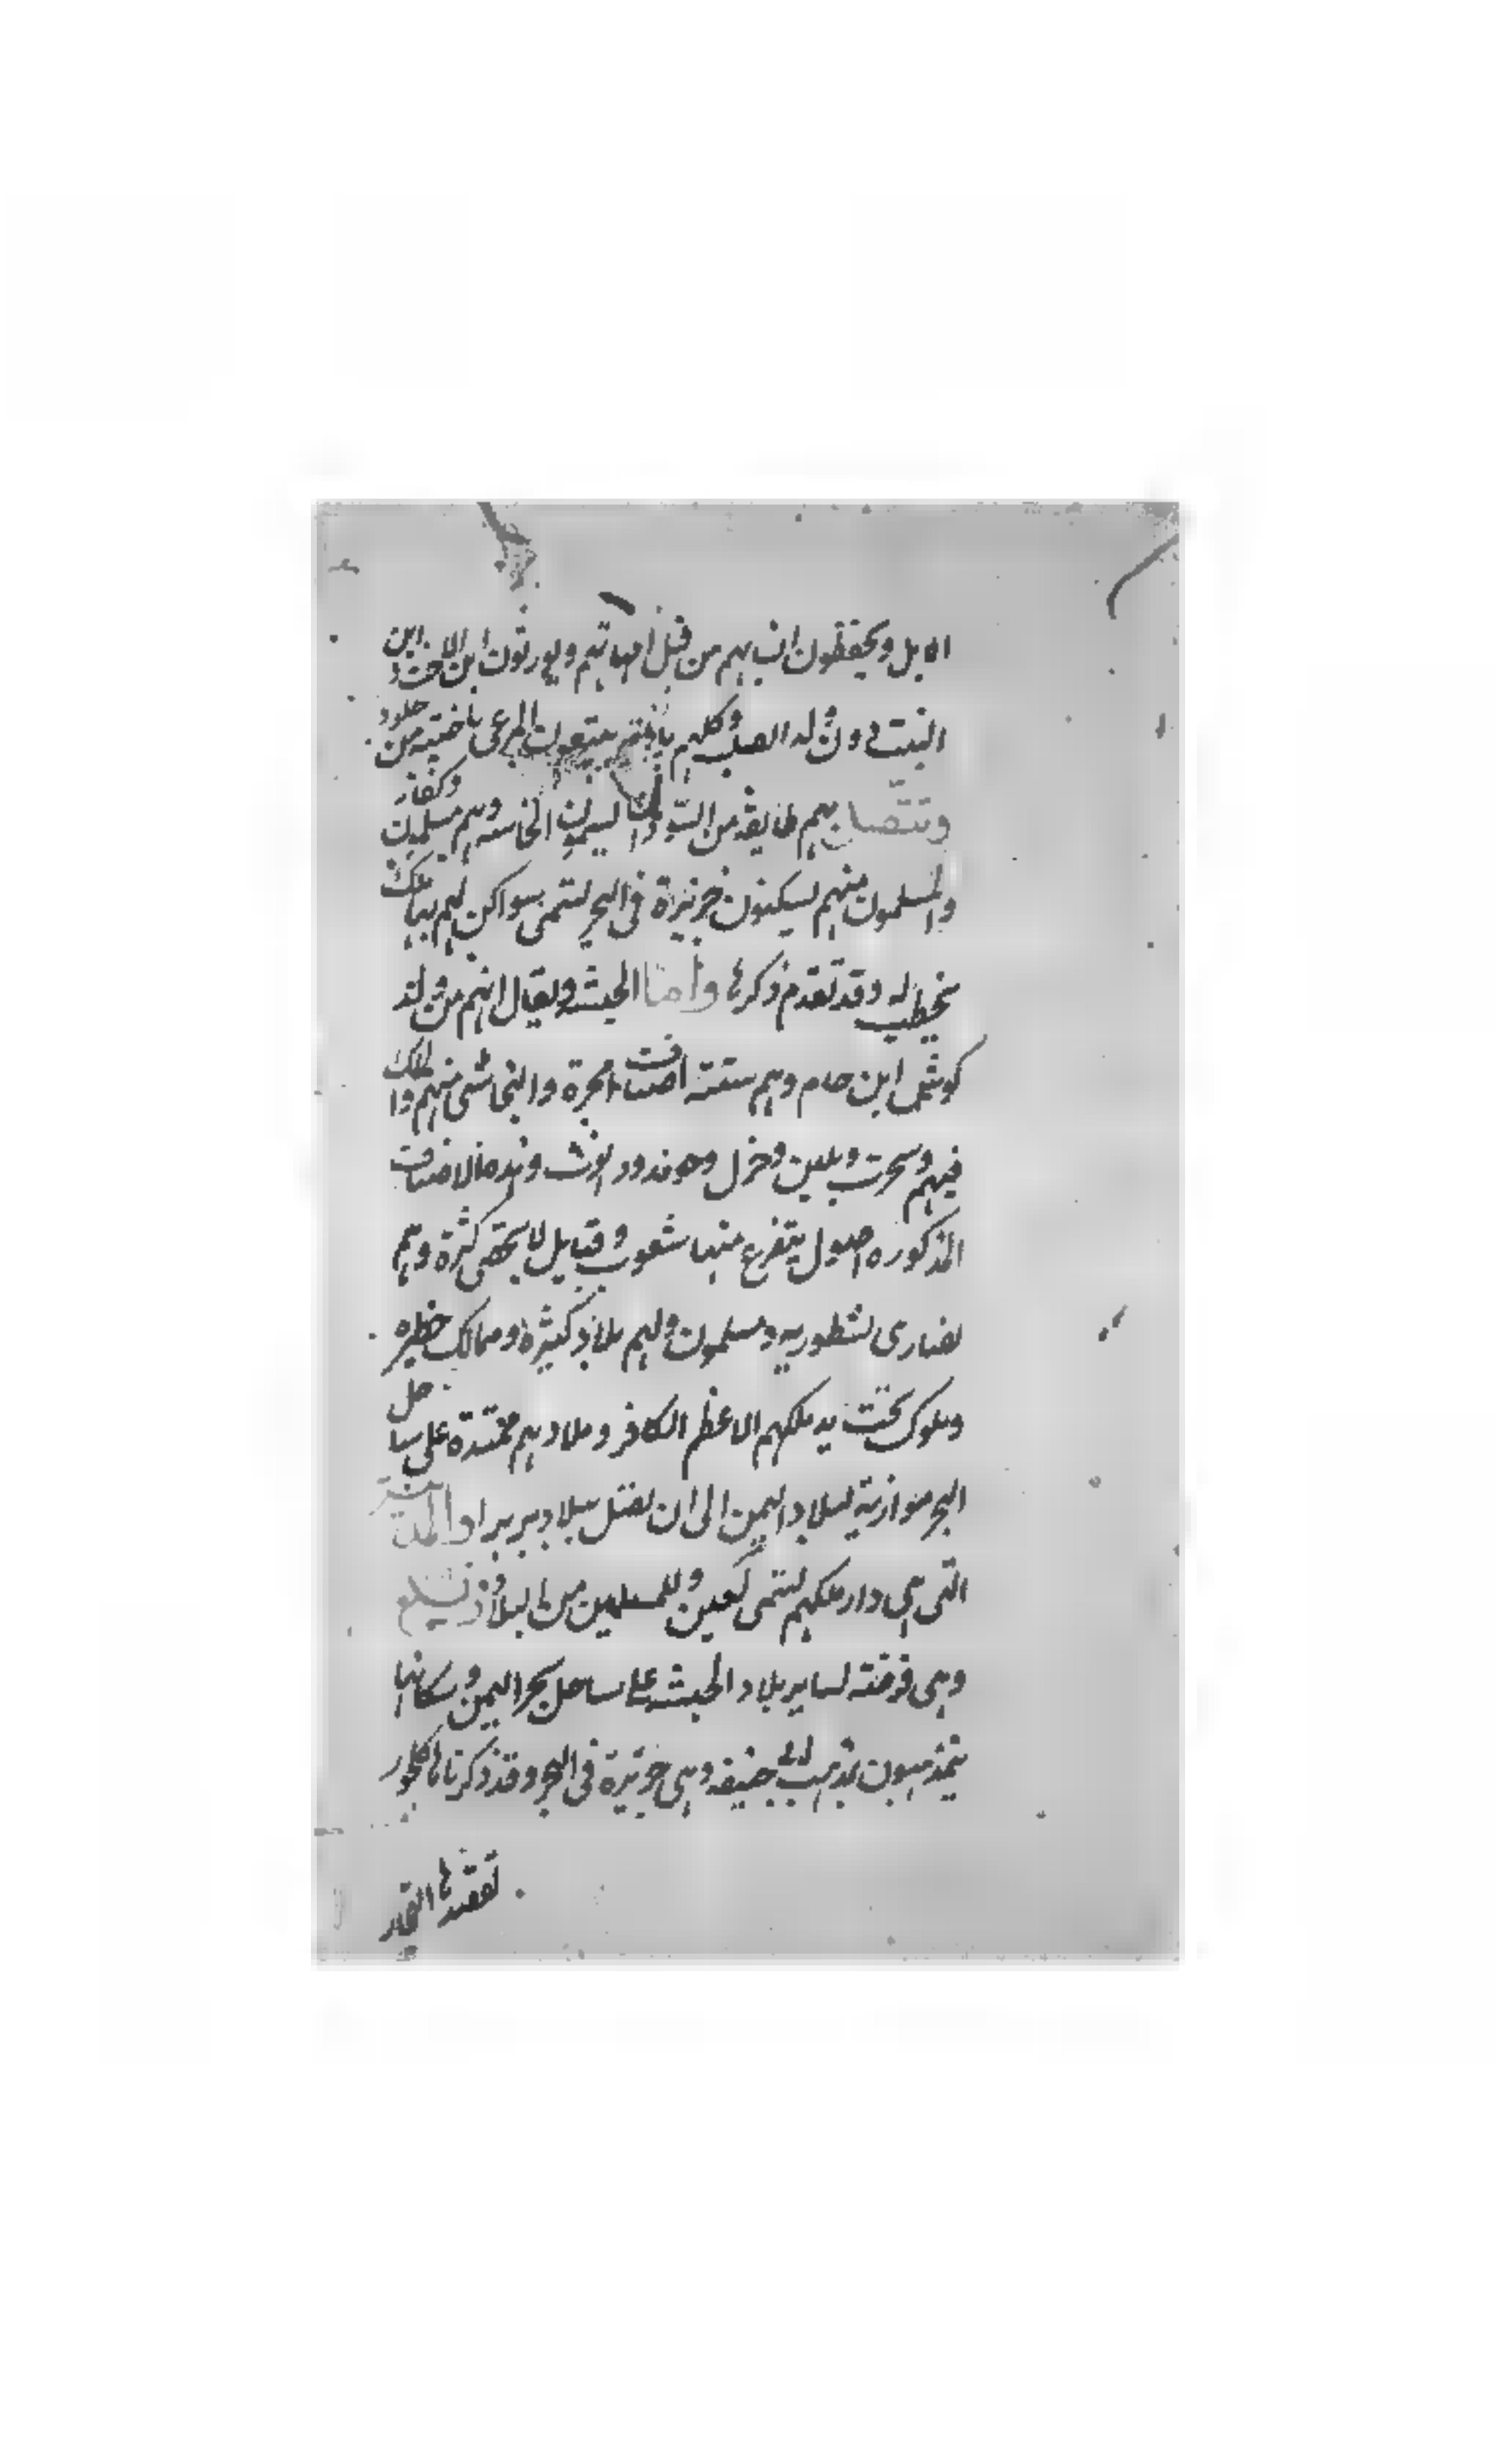 الابل ويحفظون انسابهم من قبل امهاتهم ويورثون ابن الاخت وابن
البنت دون ولد الصلب وكلهم بادية يتبعون المرعى باخبية من جلود
وتتصل بهم طايفة من السودان يسمون الخاسه وهم مسلمون وكفار
والمسلمون منهم يسكنون جزيرة في البحر تسمى سواكن لهم بها ملك
يخطب له وقد تقدم ذكرها واما الحبشه ويقال انهم من ولد
كوش ابن حام وهم ستة اصناف امحرة والنجاشى منهم والملك
فيهم وسحرت وبلين وخزل وهذه الاصناف
المذكوره اصول يتفرع منها شعوب وقبايل لا تحصى كثرة وهم
نصارى نسطوريه ومسلمون ولهم بلاد كثيرة وممالك خطيره
وملوك تحت يد ملكهم الاعظم الكافر وبلادهم ممتدة على ساحل
البحر موازية لبلاد اليمن الى ان تصل ببلاد بربرا والمدينة
التى هي دار ملكهم تسمى كعبر وللمسلمين من البلاد زيلع
وهي فرضة لساير بلاد الحبشه على ساحل بحر اليمن وسكانها
يتمذهبون بمذهب ابي حنيفه وهي جزيرة في البحر وقد ذكرناها
تقصدها التجار